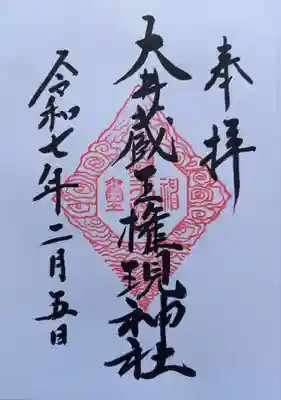 奉拝
大井蔵王権現神社
令和七年二月五日